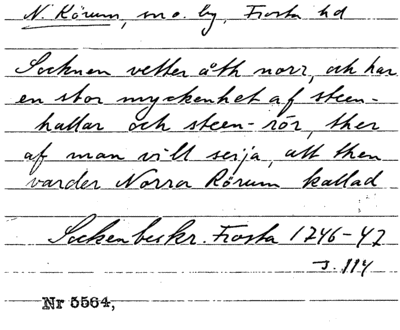 N. Rörum, sn o. by, Frosta hd
Socknen vetter åth norr, och har
en stor myckenhet af steen-
hallar och steen-rör, ther
af man vill seija, att then
varder Norra Rörum kallad
Sockenbeskr. Frosta 1746-47
s. 114
Nr 5564,